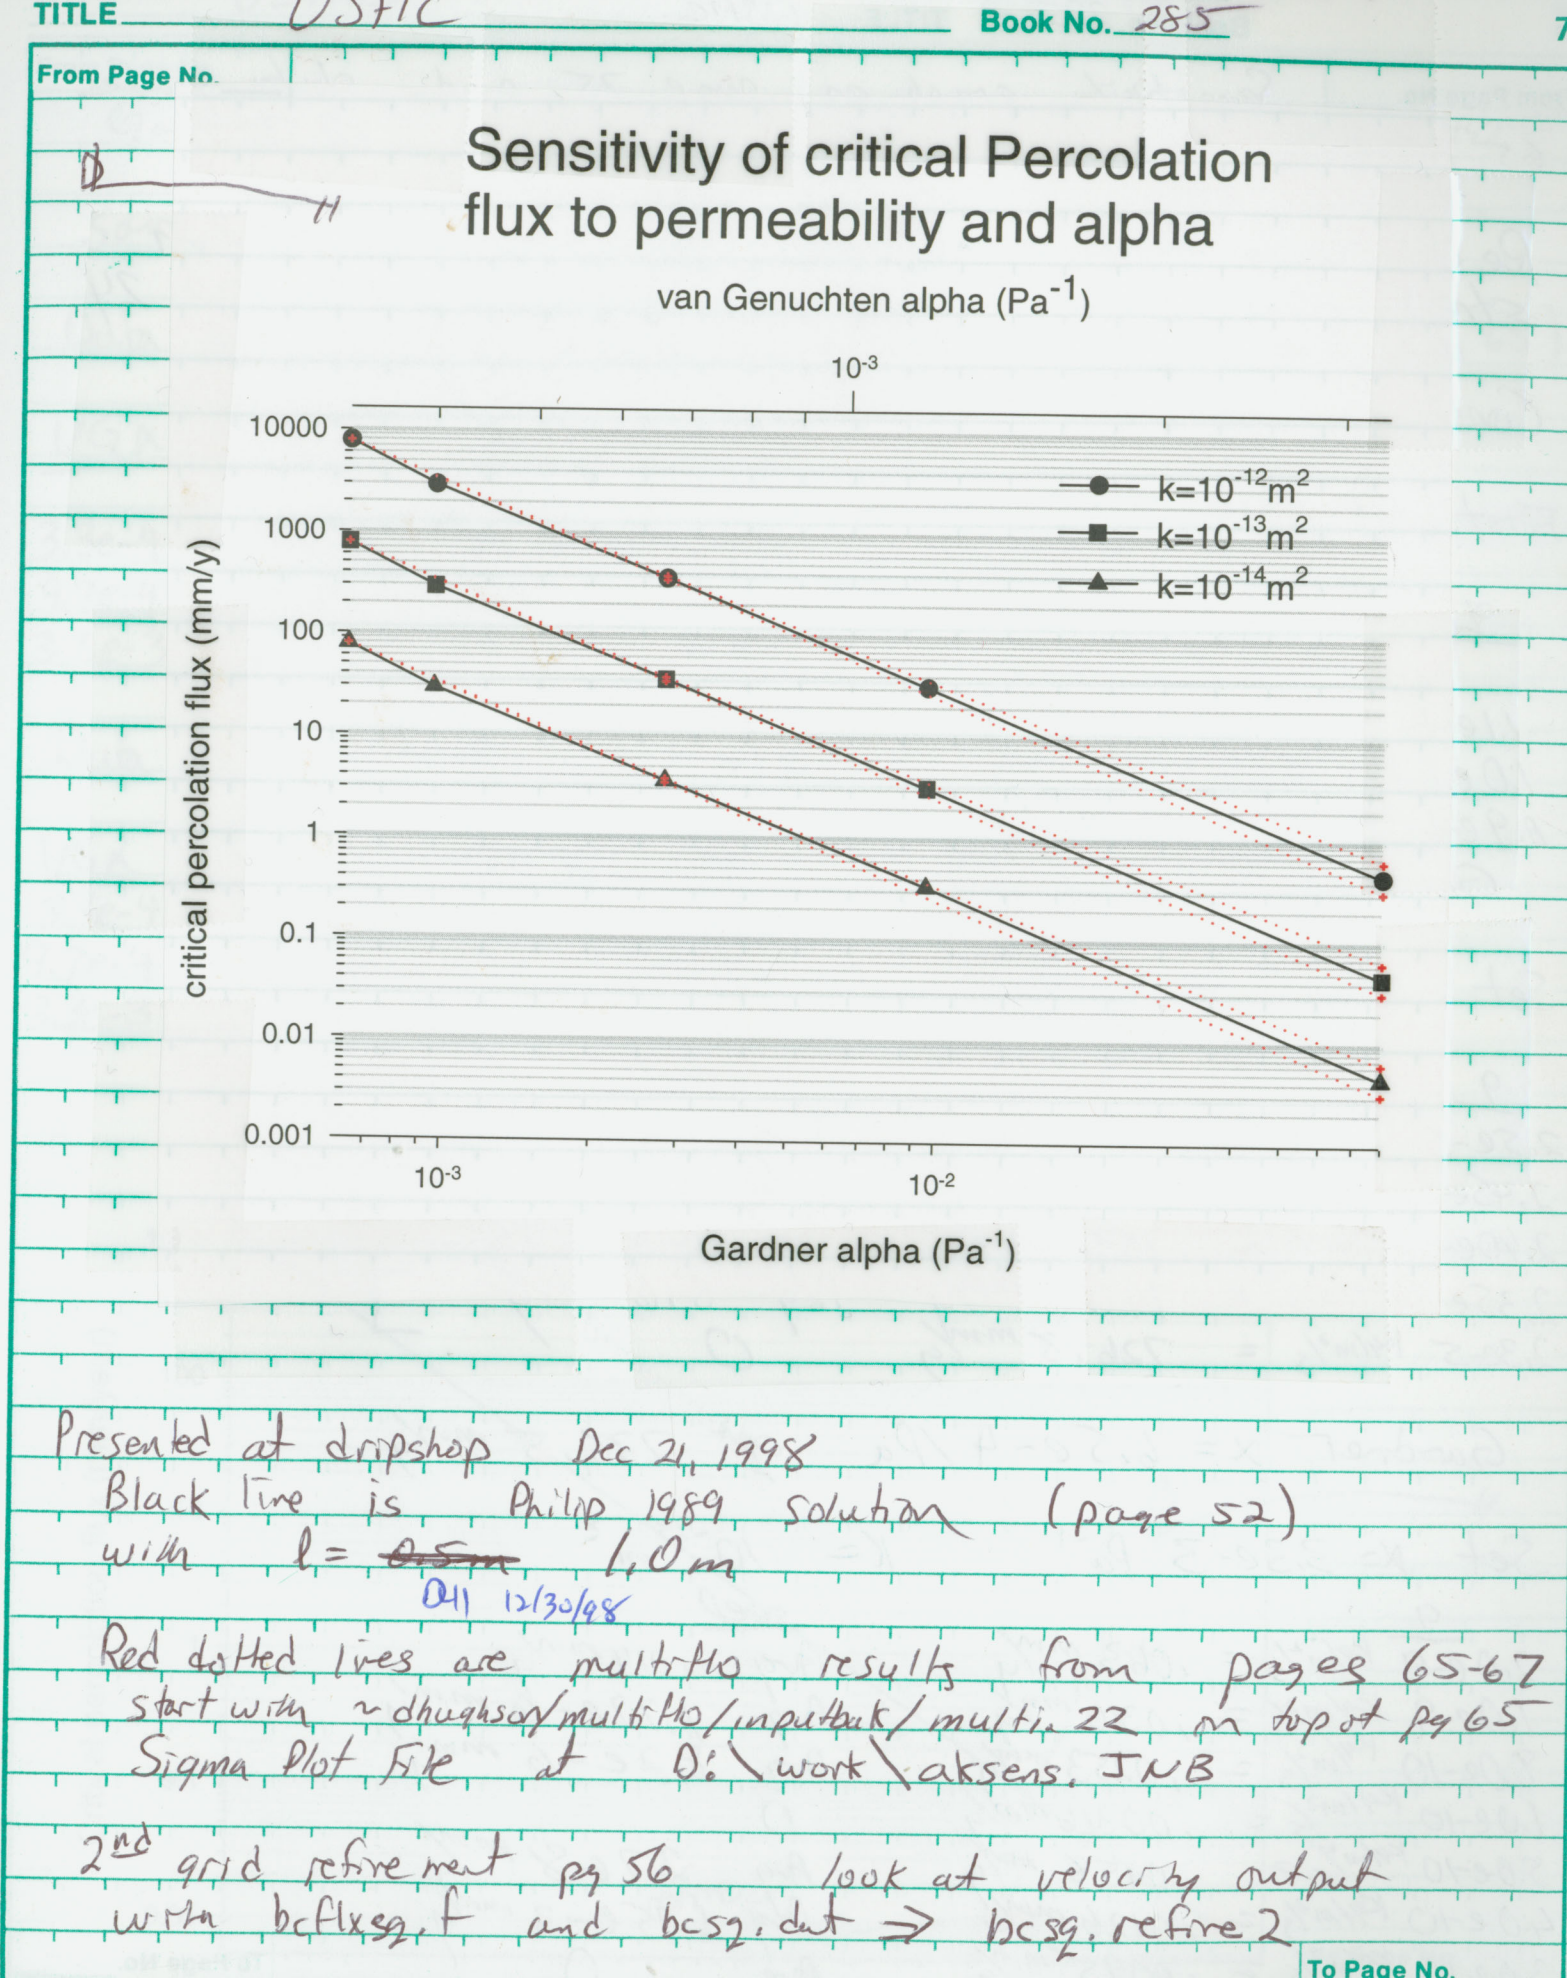 TITLE USFIC Book No. 285 7
From Page No.
DH
Sensitivity of critical Percolation
flux to permeability and alpha
van Genuchten alpha (Pa⁻¹)
10⁻³
10000
k=10⁻¹²m²
1000
k=10⁻¹³m²
k=10⁻¹⁴m²
100
10
1
0.1
0.01
0.001
critical percolation flux (mm/y)
10⁻³ 10⁻²
Gardner alpha (Pa⁻¹)
Presented at dripshop Dec 21, 1998
Black line is Philip 1989 solution (page 52)
with l = 0.5m 1.0m
DH 12/30/98
Red dotted lines are multiflo results from pages 65-67
start with ~dhughson/multiflo/inputbak/multi.22 on top of pg 65
Sigma Plot File at D:\work\aksens.JNB
2nd grid refirement pg 56 look at velocity output
with bcflxsq.f and bcsq.dat ⇒ bcsq.refire2
To Page No.